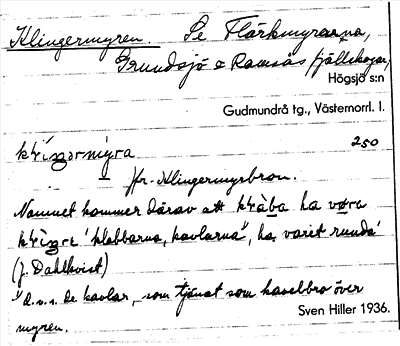 Klingermyren. Se Flärkmyrarna,
Grundsjö o Ramsås fjällskogar,
Högsjö s:n
Gudmundrå tg., Västernorrl. l.
250
jfr. Klingermyrbron.
Namnet kommer därav att ha
'klabbarna, kavlarna', ha varit runda'
(J. Dahlkvist)
d.v.s. de kavlar, som tjänat som kavelbro över
myren.
Sven Hiller 1936.